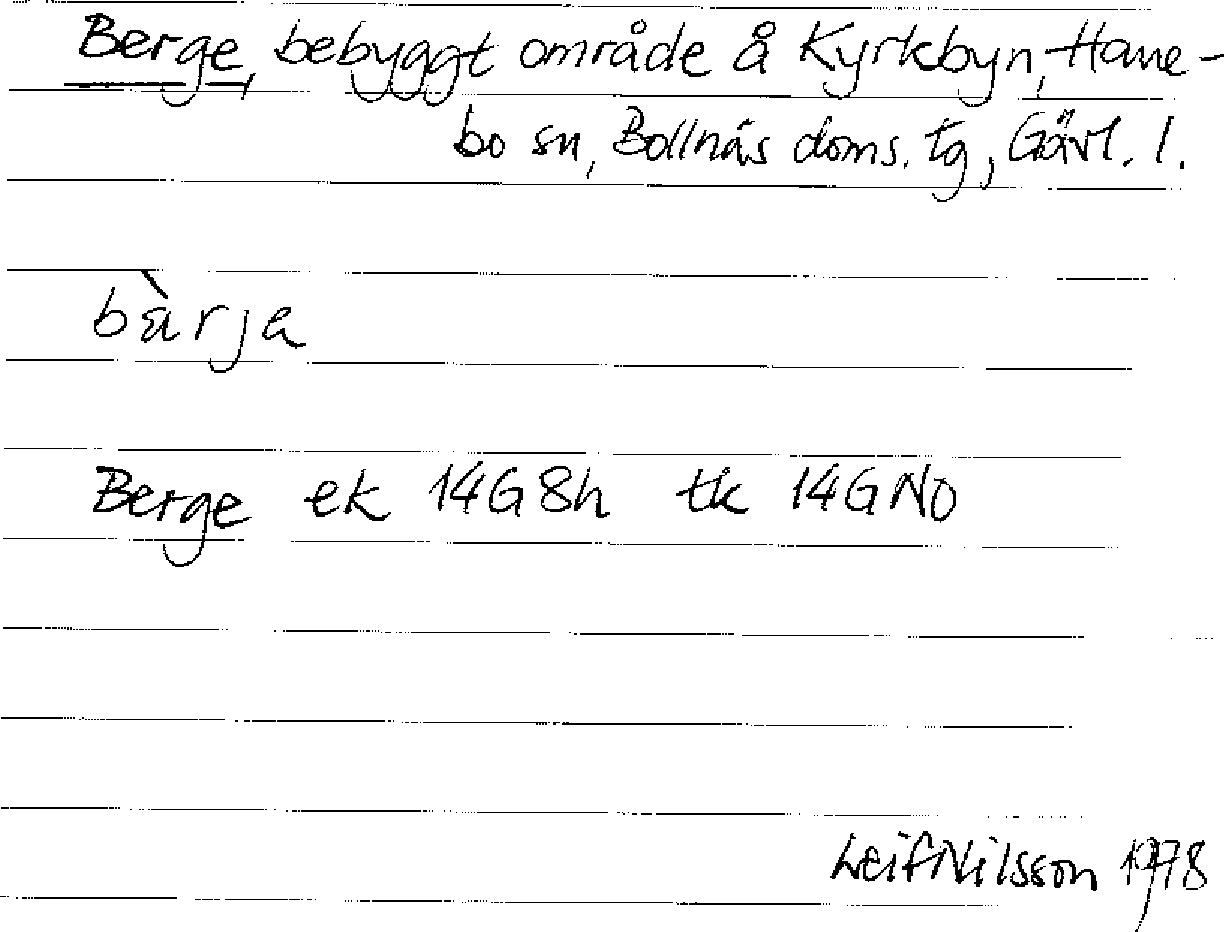 Berge, bebyggt område å Kyrkbyn, Hane-
bo sn, Bollnäs doms. tg, Gävl. l.
bàrja
Berge ek 14G8h tk 14GNO
Leif Nilsson 1978